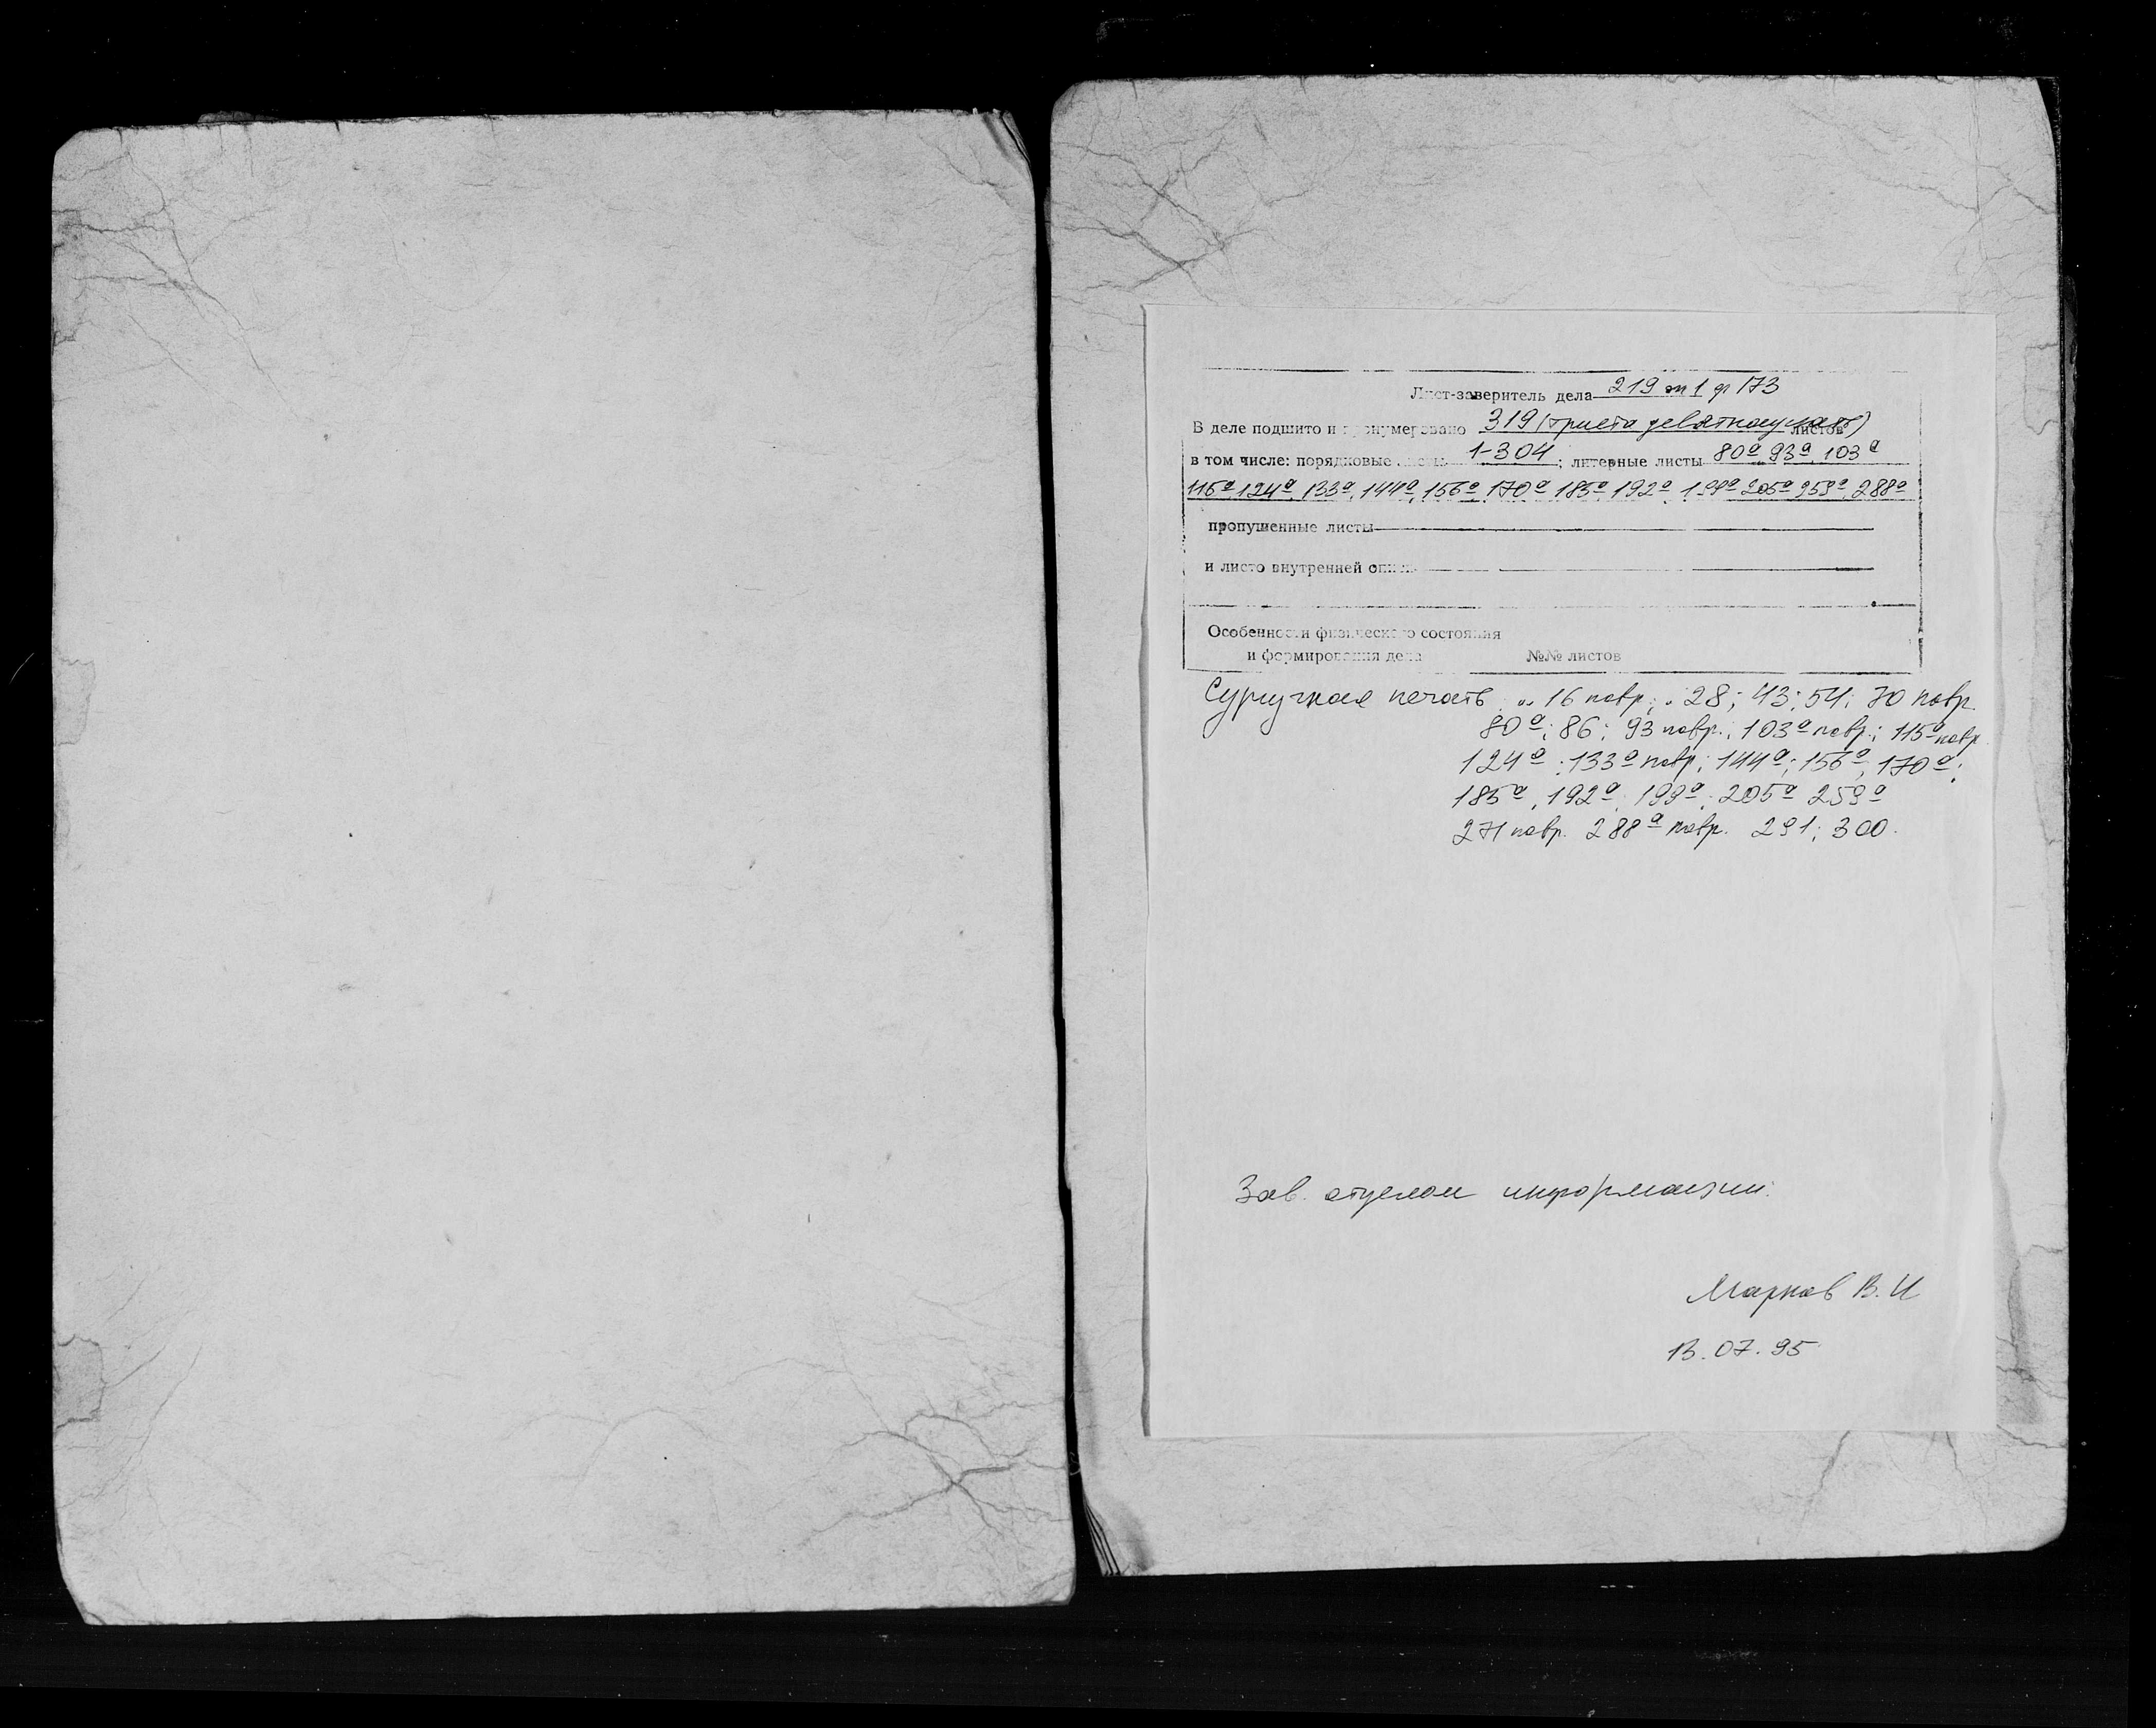 Лист-заверитель дела 219 оп 1 ф 173
В деле подшито и пронумеровано 319 (триста девятнадцать) листов
в том числе: порядковые листы 1-304; литерные листы 80а, 93а, 103а
115а, 124а, 133а, 144а, 156а, 170а, 185а, 192а, 199а, 205а, 259а, 288а
пропущенные листы
и листо внутренней описи
Особенности физического состояния
и формирования дела №№ листов
Сургучная печать 16 повр.; 28; 43; 54; 70 повр.
80а; 86; 93 повр.; 103а повр.; 115а повр
124а; 133а повр; 144а; 156а; 170а;
185а, 192а, 199а; 205а 259а
271 повр. 288а повр. 291; 300.
Зав. отделом информации.
Марков В. И
13.07.95